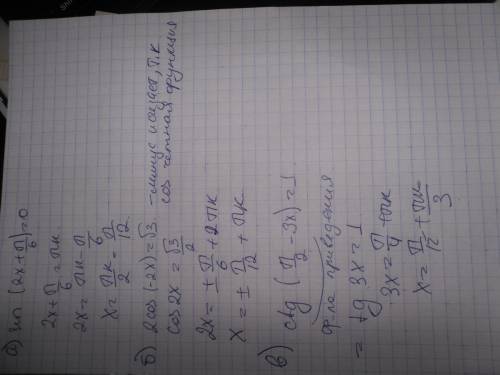 а) sin (2x+π/6)=0
2x+π/6=πк
2x=πк-π/6
x=πк/2-π/12
б) 2cos(-2x)=√3. -минус исчезает, т.к
cos четная функция
cos2x=√3/2
2x=±π/6+2πк
x=±π/12+πк
в) ctg (π/2-3x)=1
ф-ла приведения
= tg 3x=1
3x=π/4+πк
x=π/12+πк/3